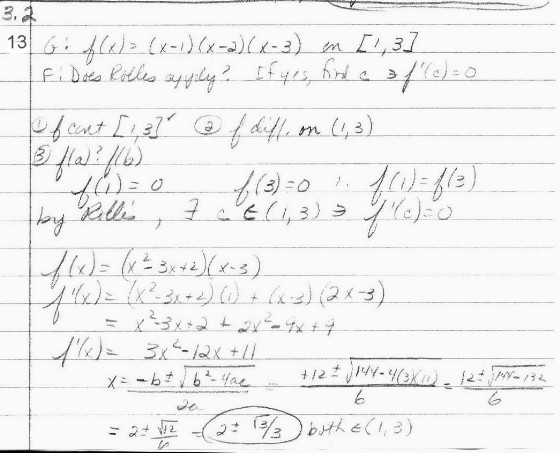 3.2
13 G: f(x) = (x-1)(x-2)(x-3) on [1,3]
F: Does Rolles apply? If yes, find c ∋ f'(c)=0
① f cont [1,3] ✓ ② f diff. on (1,3)
③ f(a) ? f(b)
f(1) = 0 f(3)=0 ∴ f(1)=f(3)
by Rolle's, ∃ c ∈ (1,3) ∋ f'(c)=0
f(x) = (x²-3x+2)(x-3)
f'(x) = (x²-3x+2)(1) + (x-3)(2x-3)
= x²-3x+2 + 2x²-9x+9
f'(x) = 3x²-12x+11
x = (-b ± √(b²-4ac))/2a = (+12 ± √(144-4(3)(11)))/6 = (12 ± √(144-132))/6
= 2 ± √12/6 = 2 ± √3/3 both ∈ (1,3)